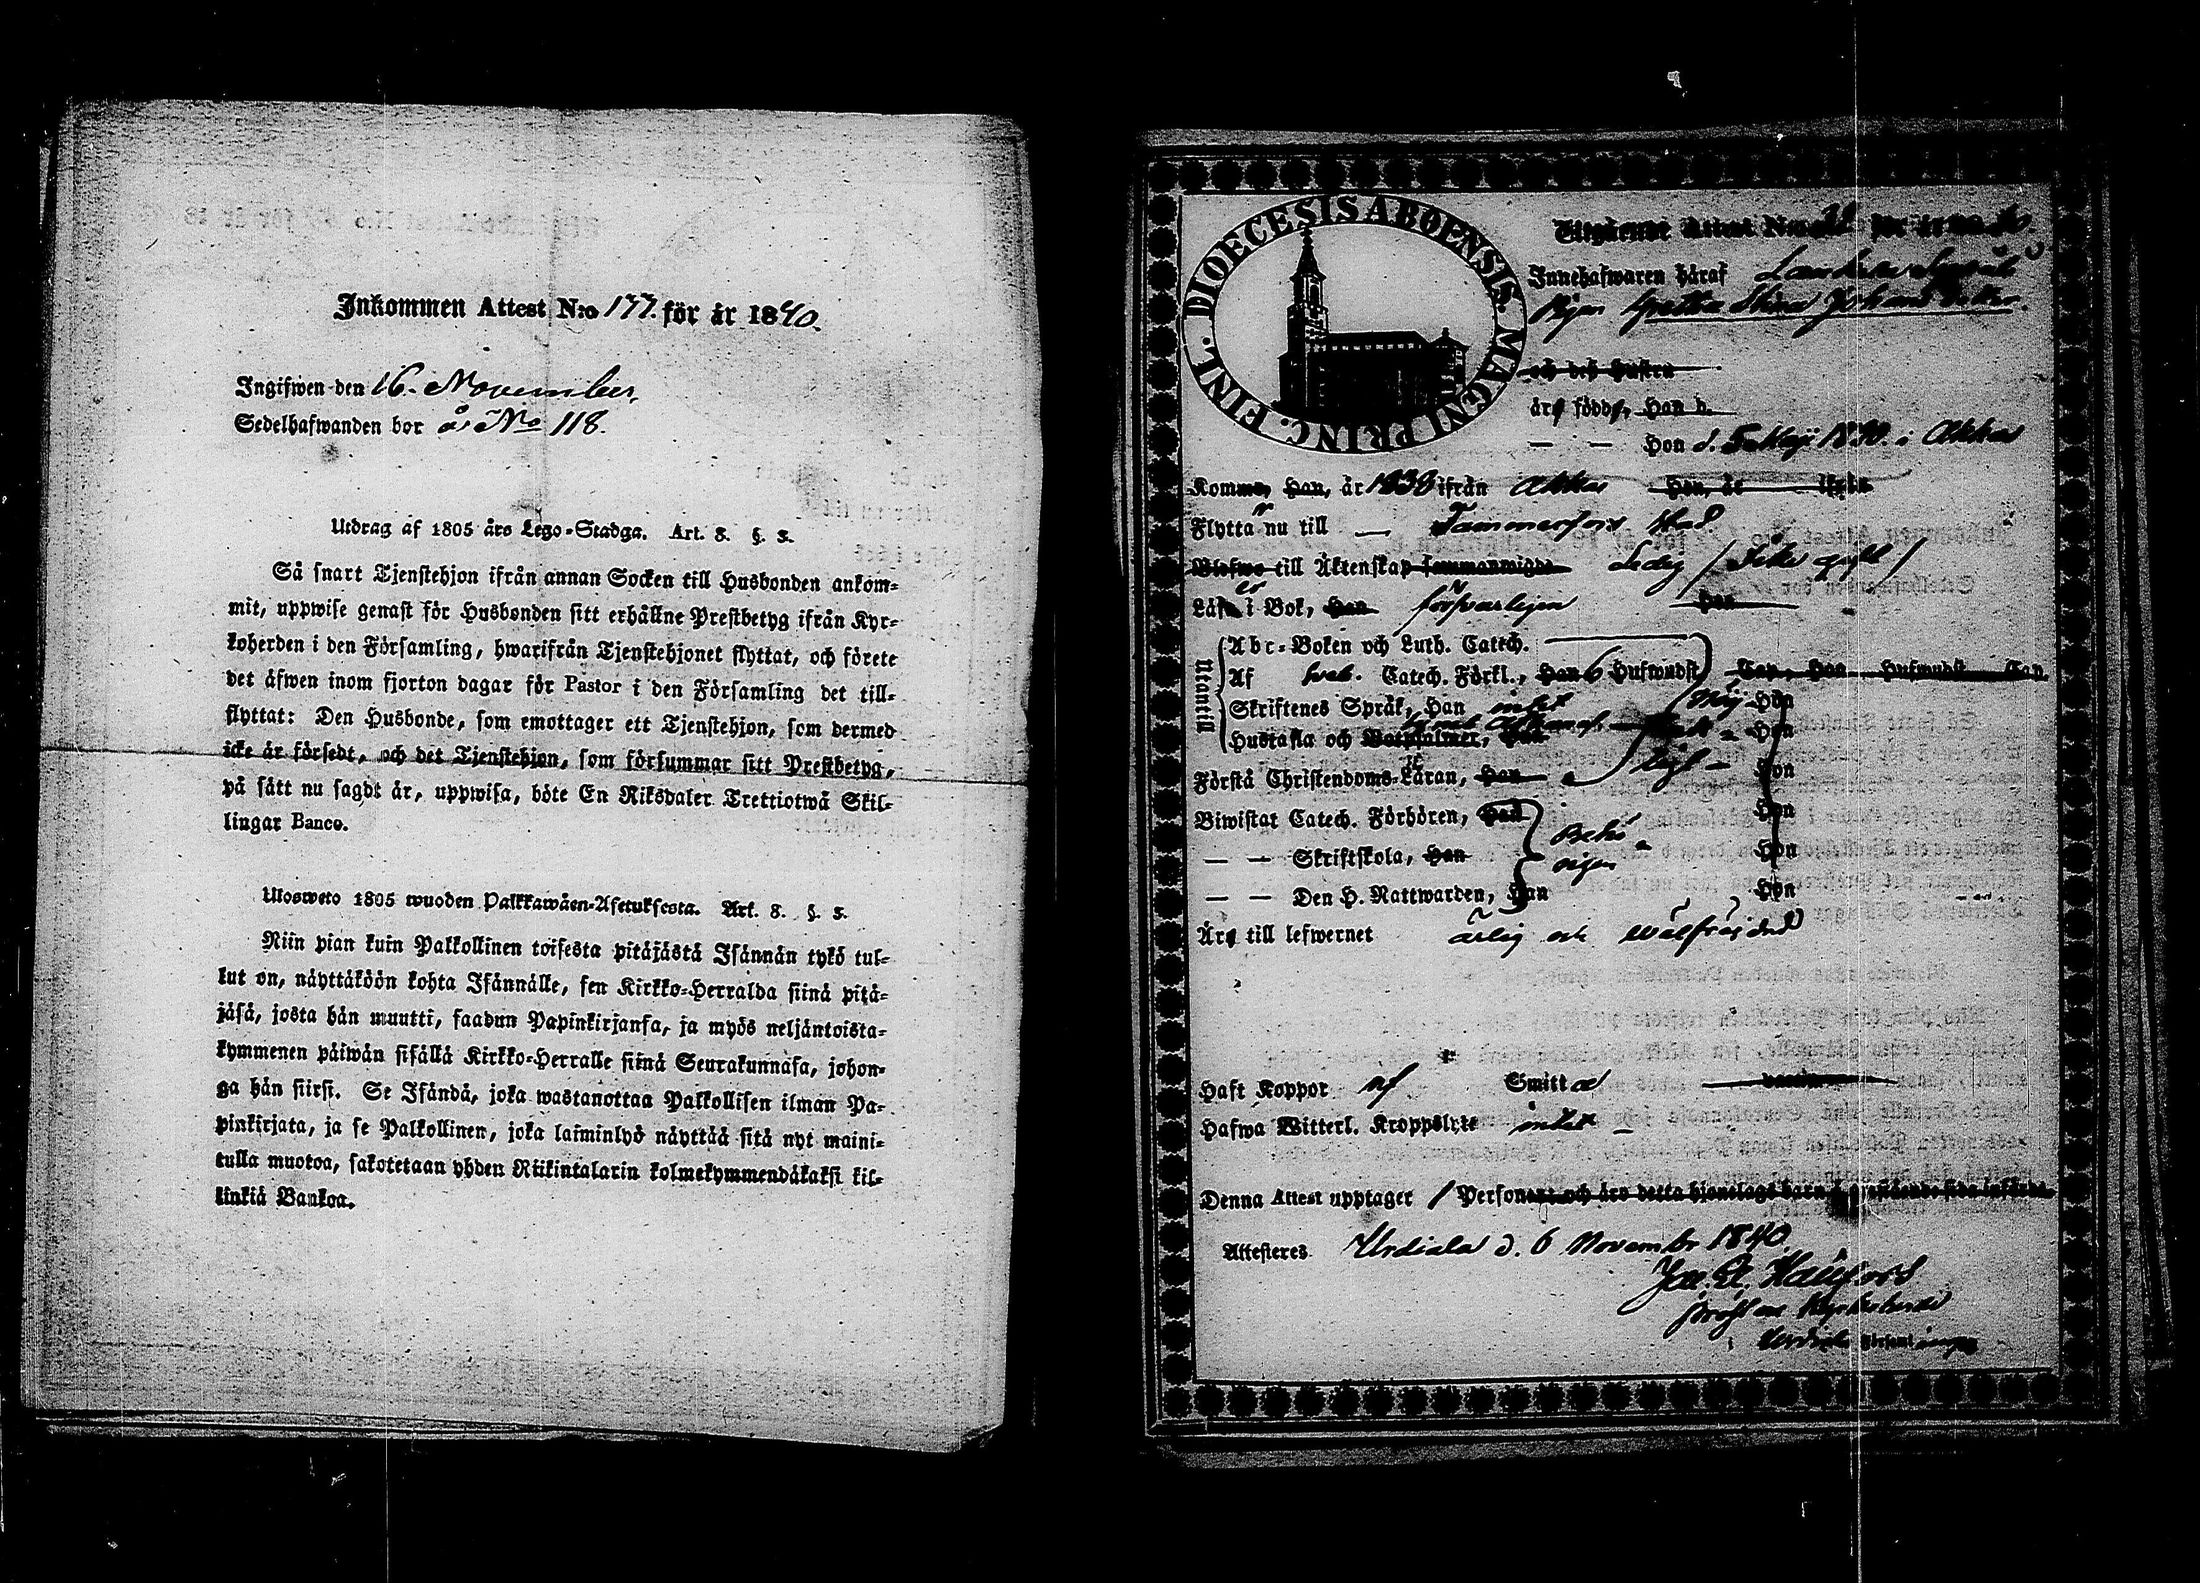 Inkommen Attest N:o 177. för år 1840.
Ingifwen den 16. November.
Sedelhafwanden bor å No 118.
Utdrag af 1805 års Lego-Stadga. Art. 8. §. 3.
Så snart Tjenstehjon ifrån annan Socken till Husbonden ankom-
mit, uppwise genast för Husbonden sitt erhållne Prestbetyg ifrån Kyr-
koherden i den Församling, hwarifrån Tjenstehjonet flyttat, och förete
det äfwen inom fjorton dagar för Pastor i den Församling det till-
flyttat: Den Husbonde, som emottager ett Tjenstehjon, som dermed
icke är försedt, och det Tjenstehjon, som försummar sitt Prestbetyg,
på sätt nu sagdt är, uppwisa, böte En Riksdaler Trettiotwå Skil-
lingar Banco.
Ulosweto 1805 wuoden Palkkawäen-Asetuksesta. Art. 8. §. 3.
Niin pian kuin Palkollinen toisesta pitäjästä Isännän tykö tul-
lut on, näyttäköön kohta Isännälle, sen Kirkko-Herralda siinä pitä-
jäsä, josta hän muutti, saadun Papinkirjansa, ja myös neljäntoista-
kymmenen päiwän sisällä Kirkko-Herralle siinä Seurakunnasa, johon-
ga hän siirsi. Se Isändä, joka wastanottaa Palkollisen ilman Pa-
pinkirjata, ja se Palkollinen, joka laiminlyö näyttää sitä nyt maini-
tulla muotoa, sakotetaan yhden Riikintalarin kolmekymmendäkaksi kil-
linkiä Bankoa.
DIOECESIS ABOENSIS. MAGNI PRINC. FINL.
Utgående Attest N:o för år 18
Innehafwaren häraf
Pigan Greta Stina Johansdotter
och dess Hustru
äro födde, Han d.
— — Hon d. 5 Maji 18 i Akkas
Komme, Han, år 1838 ifrån Akkas Hon, år ifrån
Flytta r nu till — Tammerfors stad
Blefwe till Äktenskap sammanwigde Ledig
Läsa er i Bok, Han försvarligen Hon
Utantill
Abc-Boken och Luth. Catech.
Af Sveb. Catech. Förkl., Han 6 Hufwudst. Cap., Hon Hufwudst. Cap.
Skriftenes Språk, Han intet Hon
Hustafla och Botpsalmer, Han Hon
Förstå Christendoms-Läran, Han Hon
Biwistat Catech. Förhören, Han Hon
— — Skriftskola, Han Hon
— — Den H. Nattwarden, Han Hon
Äro till lefwernet ärlig och wälfräjdad
Haft Koppor af Smitta
Hafwa Witterl. Kroppslyte intet
Denna Attest upptager 1 Personer och äro detta hjonelags barn å
Attesteres Urdiala d. 6 November 1840.
Prost och Kyrkoherde